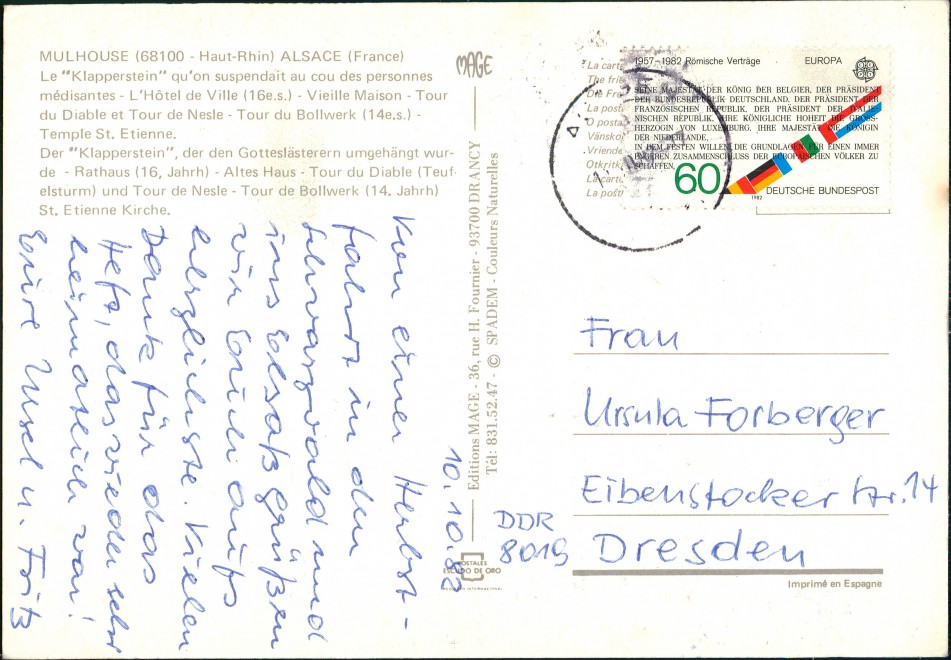 MULHOUSE (68100 - Haut-Rhin) ALSACE (France)
Le "Klapperstein" qu'on suspendait au cou des personnes
médisantes - L'Hôtel de Ville (16e.s.) - Vieille Maison - Tour
du Diable et Tour de Nesle - Tour du Bollwerk (14e.s.) -
Temple St. Etienne.
Der "Klapperstein", der den Gotteslästerern umgehängt wur-
de - Rathaus (16, Jahrh) - Altes Haus - Tour du Diable (Teuf-
elsturm) und Tour de Nesle - Tour de Bollwerk (14. Jarhh)
St. Etienne Kirche.
10.10.82
Von einer Herbst-
fahrt in den
Schwarzwald und
ins Elsaß grüßen
wir Euch aufs
herzlichste. Vielen
Dank für das
Heft, das wieder sehr
heimatlich war!
Eure Ursel u. Fritz
MAGE
Editions MAGE - 36, rue H. Fournier - 93700 DRANCY
Tél: 831.52.47 - © SPADEM - Couleurs Naturelles
POSTALES
ESCUDO DE ORO
La carte
The frie
Die Fre
La post
O posta
Vänsko
Vriende
Otkritk
La carte
La posti
1957-1982 Römische Verträge
EUROPA
SEINE MAJESTÄT DER KÖNIG DER BELGIER, DER PRÄSIDENT
DER BUNDESREPUBLIK DEUTSCHLAND, DER PRÄSIDENT DER
FRANZÖSISCHEN REPUBLIK, DER PRÄSIDENT DER ITALIE-
NISCHEN REPUBLIK, IHRE KÖNIGLICHE HOHEIT DIE GROSS-
HERZOGIN VON LUXEMBURG, IHRE MAJESTÄT DIE KÖNIGIN
DER NIEDERLANDE,
IN DEM FESTEN WILLEN, DIE GRUNDLAGEN FÜR EINEN IMMER
ENGEREN ZUSAMMENSCHLUSS DER EUROPÄISCHEN VÖLKER ZU
SCHAFFEN
60
1982
DEUTSCHE BUNDESPOST
Frau
Ursula Forberger
Eibenstocker Str. 14
DDR
8019 Dresden
Imprimé en Espagne